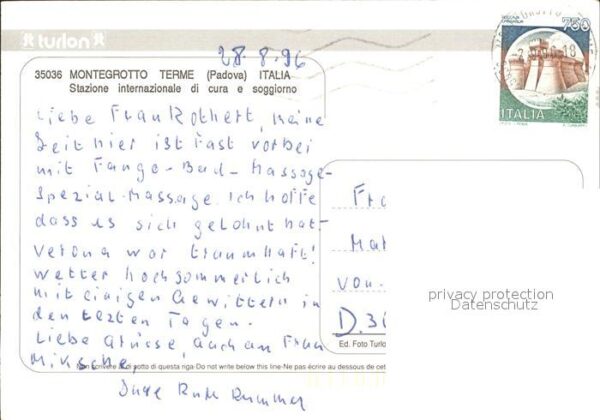 turlon
28.8.96
35036 MONTEGROTTO TERME (Padova) ITALIA
Stazione internazionale di cura e soggiorno
750
ITALIA
Liebe Frau Rothert, meine
Zeit hier ist fast vorbei
mit Fango-Bad-Massage-
Spezial-Massage. Ich hoffe
dass es sich gelohnt hat.
Verona war traumhaft!
Wetter hochsommerlich
mit einigen Gewittern in
den letzten Tagen.
Liebe Grüsse, auch an Frau
Miksche,
Ihre Rummer
Fra
Mar
von
D.3
privacy protection
Datenschutz
Ed. Foto Turlo
Non scrivere di sotto di questa riga-Do not write below this line-Ne pas écrire au dessous de cet